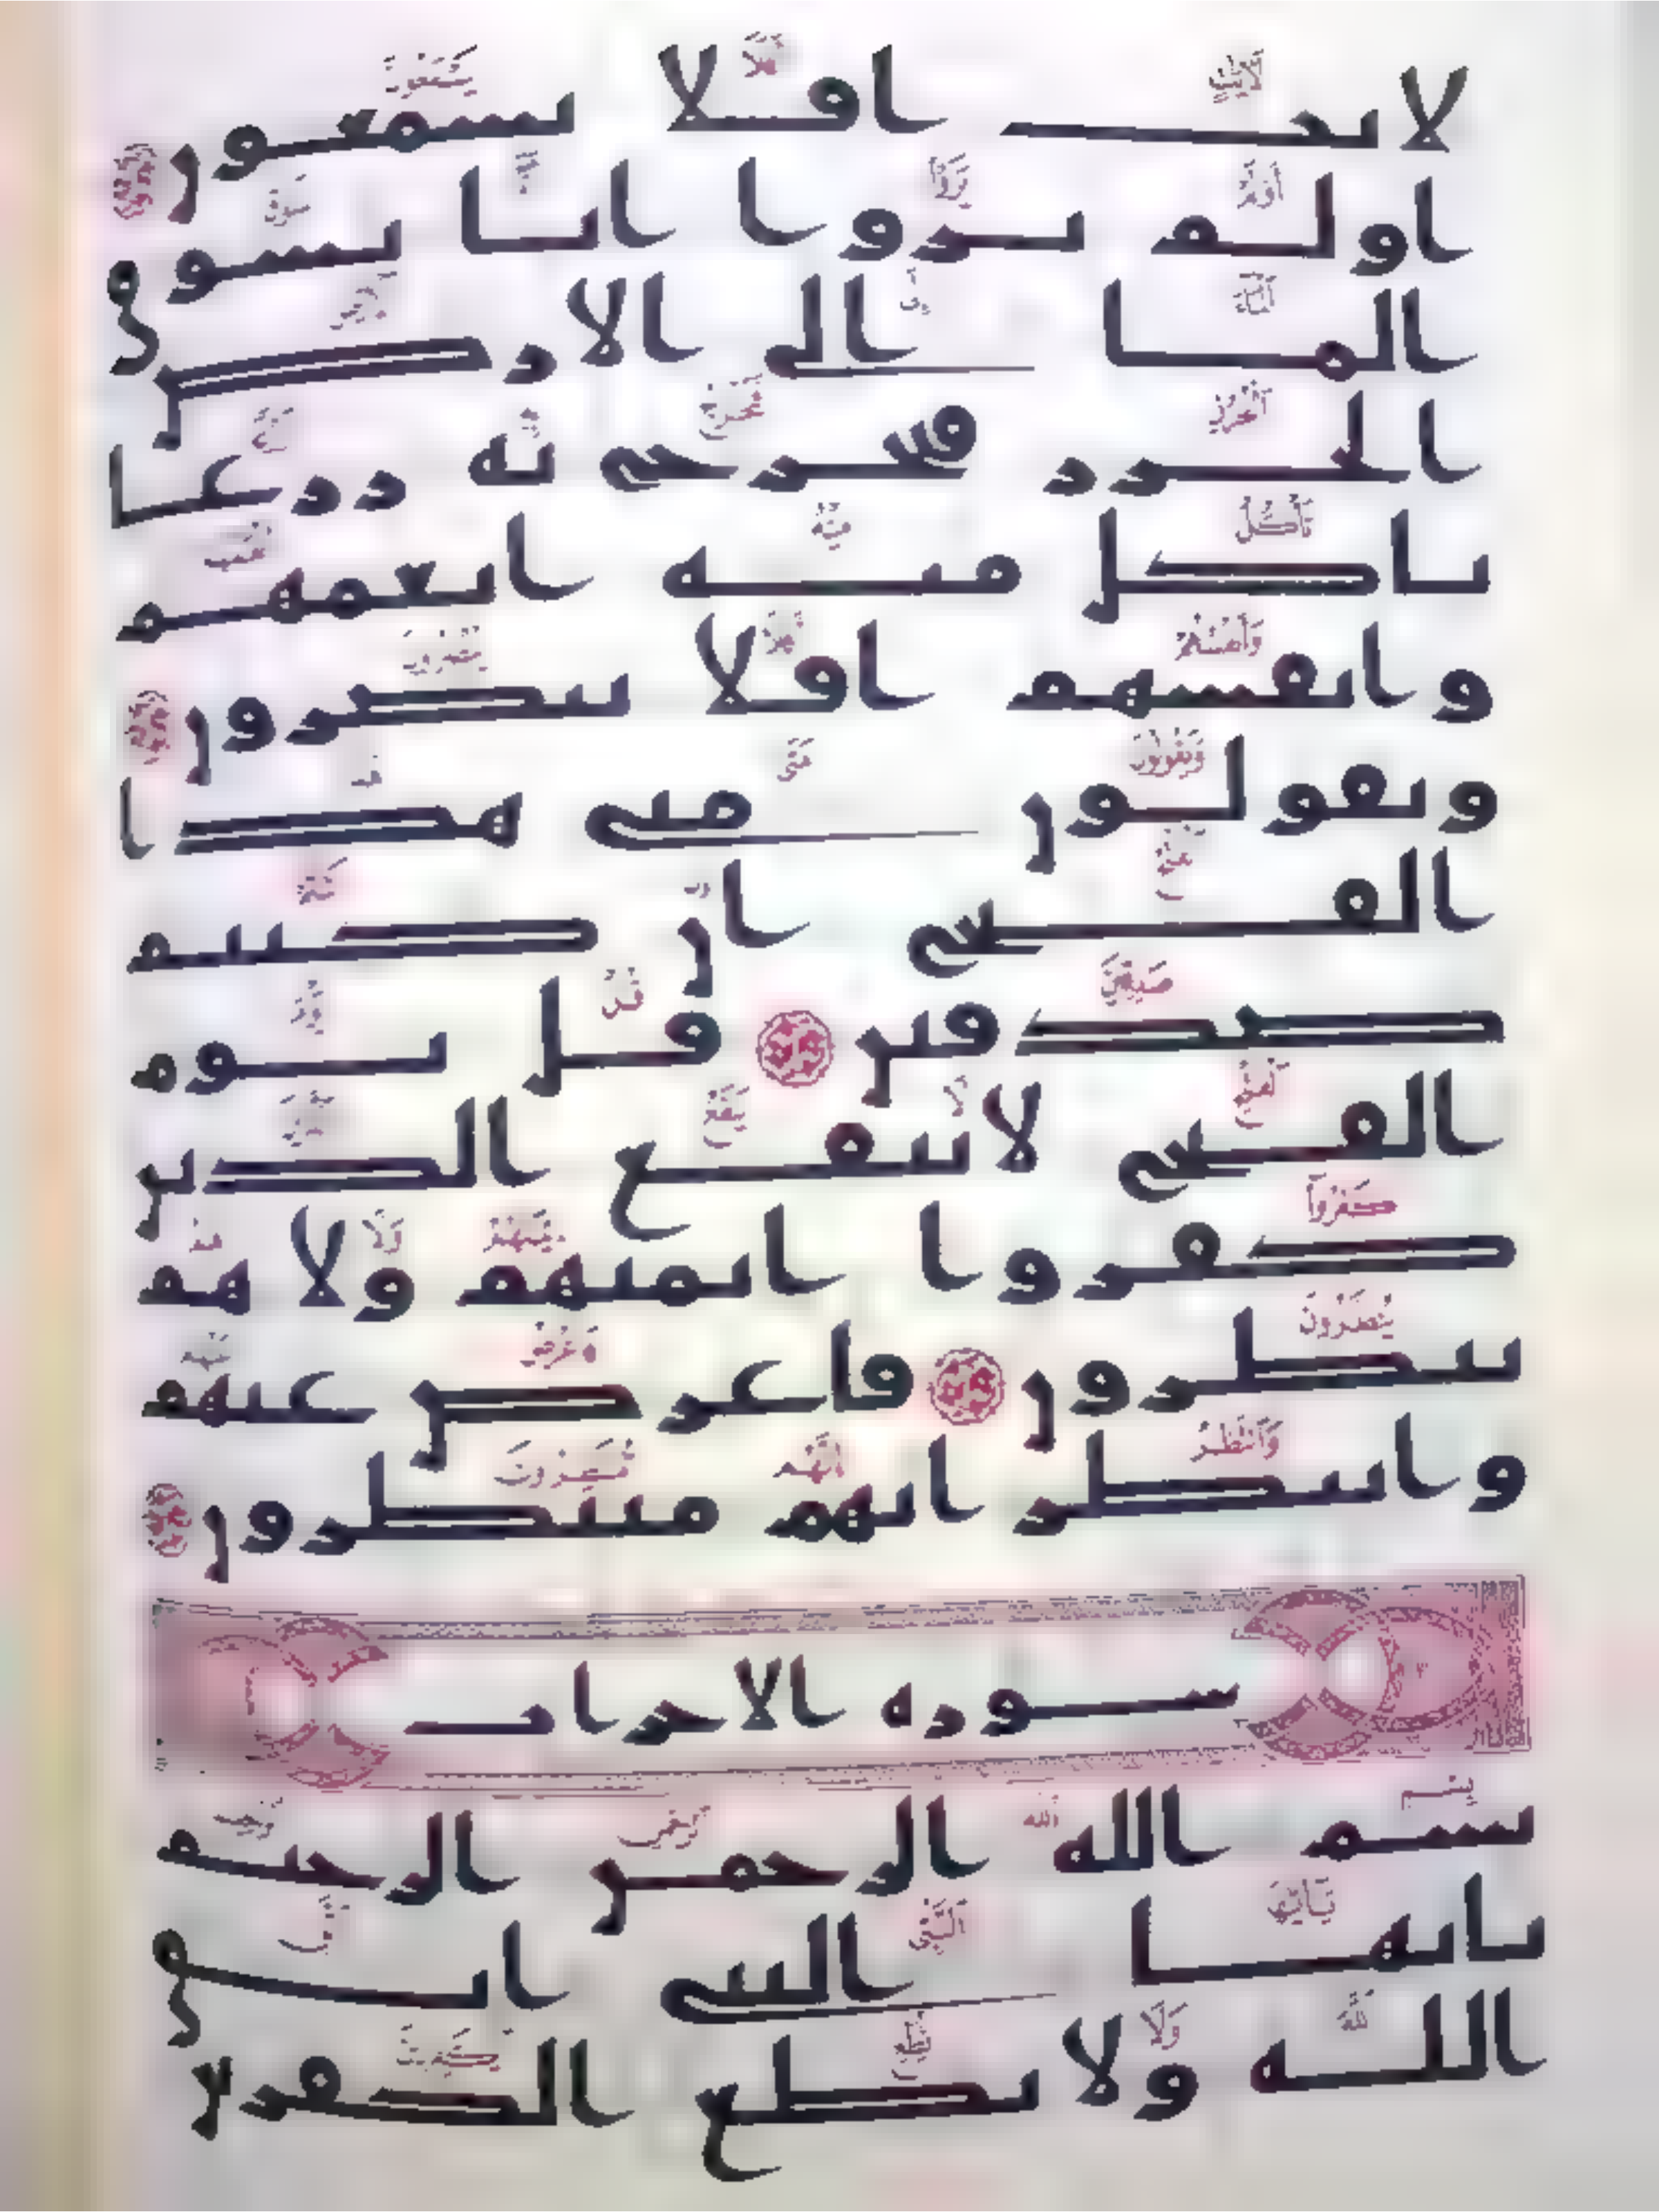 لايت افلا يسمعون
اولم يروا انا نسوق
الما الى الارض
الجرز فنخرج به زرعا
تاكل منه انعمهم
وانفسهم افلا يبصرون
ويقولون متى هذا
الفتح ان كنتم
صدقين قل يوم
الفتح لا ينفع الذين
كفروا ايمنهم ولا هم
ينظرون فاعرض عنهم
وانتظر انهم منتظرون
سورة الاحزاب
بسم الله الرحمن الرحيم
يايها النبى اتق
الله ولا تطع الكفرين